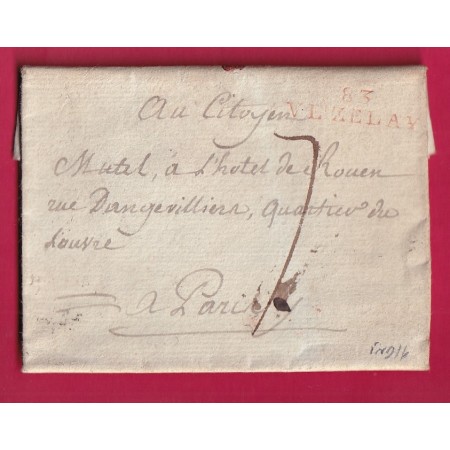 83
VEZELAY
Au Citoyen
Mutel, a L'hotel de Rouen
rue Dangevilliers, quartier du
Louvre
a Paris
7